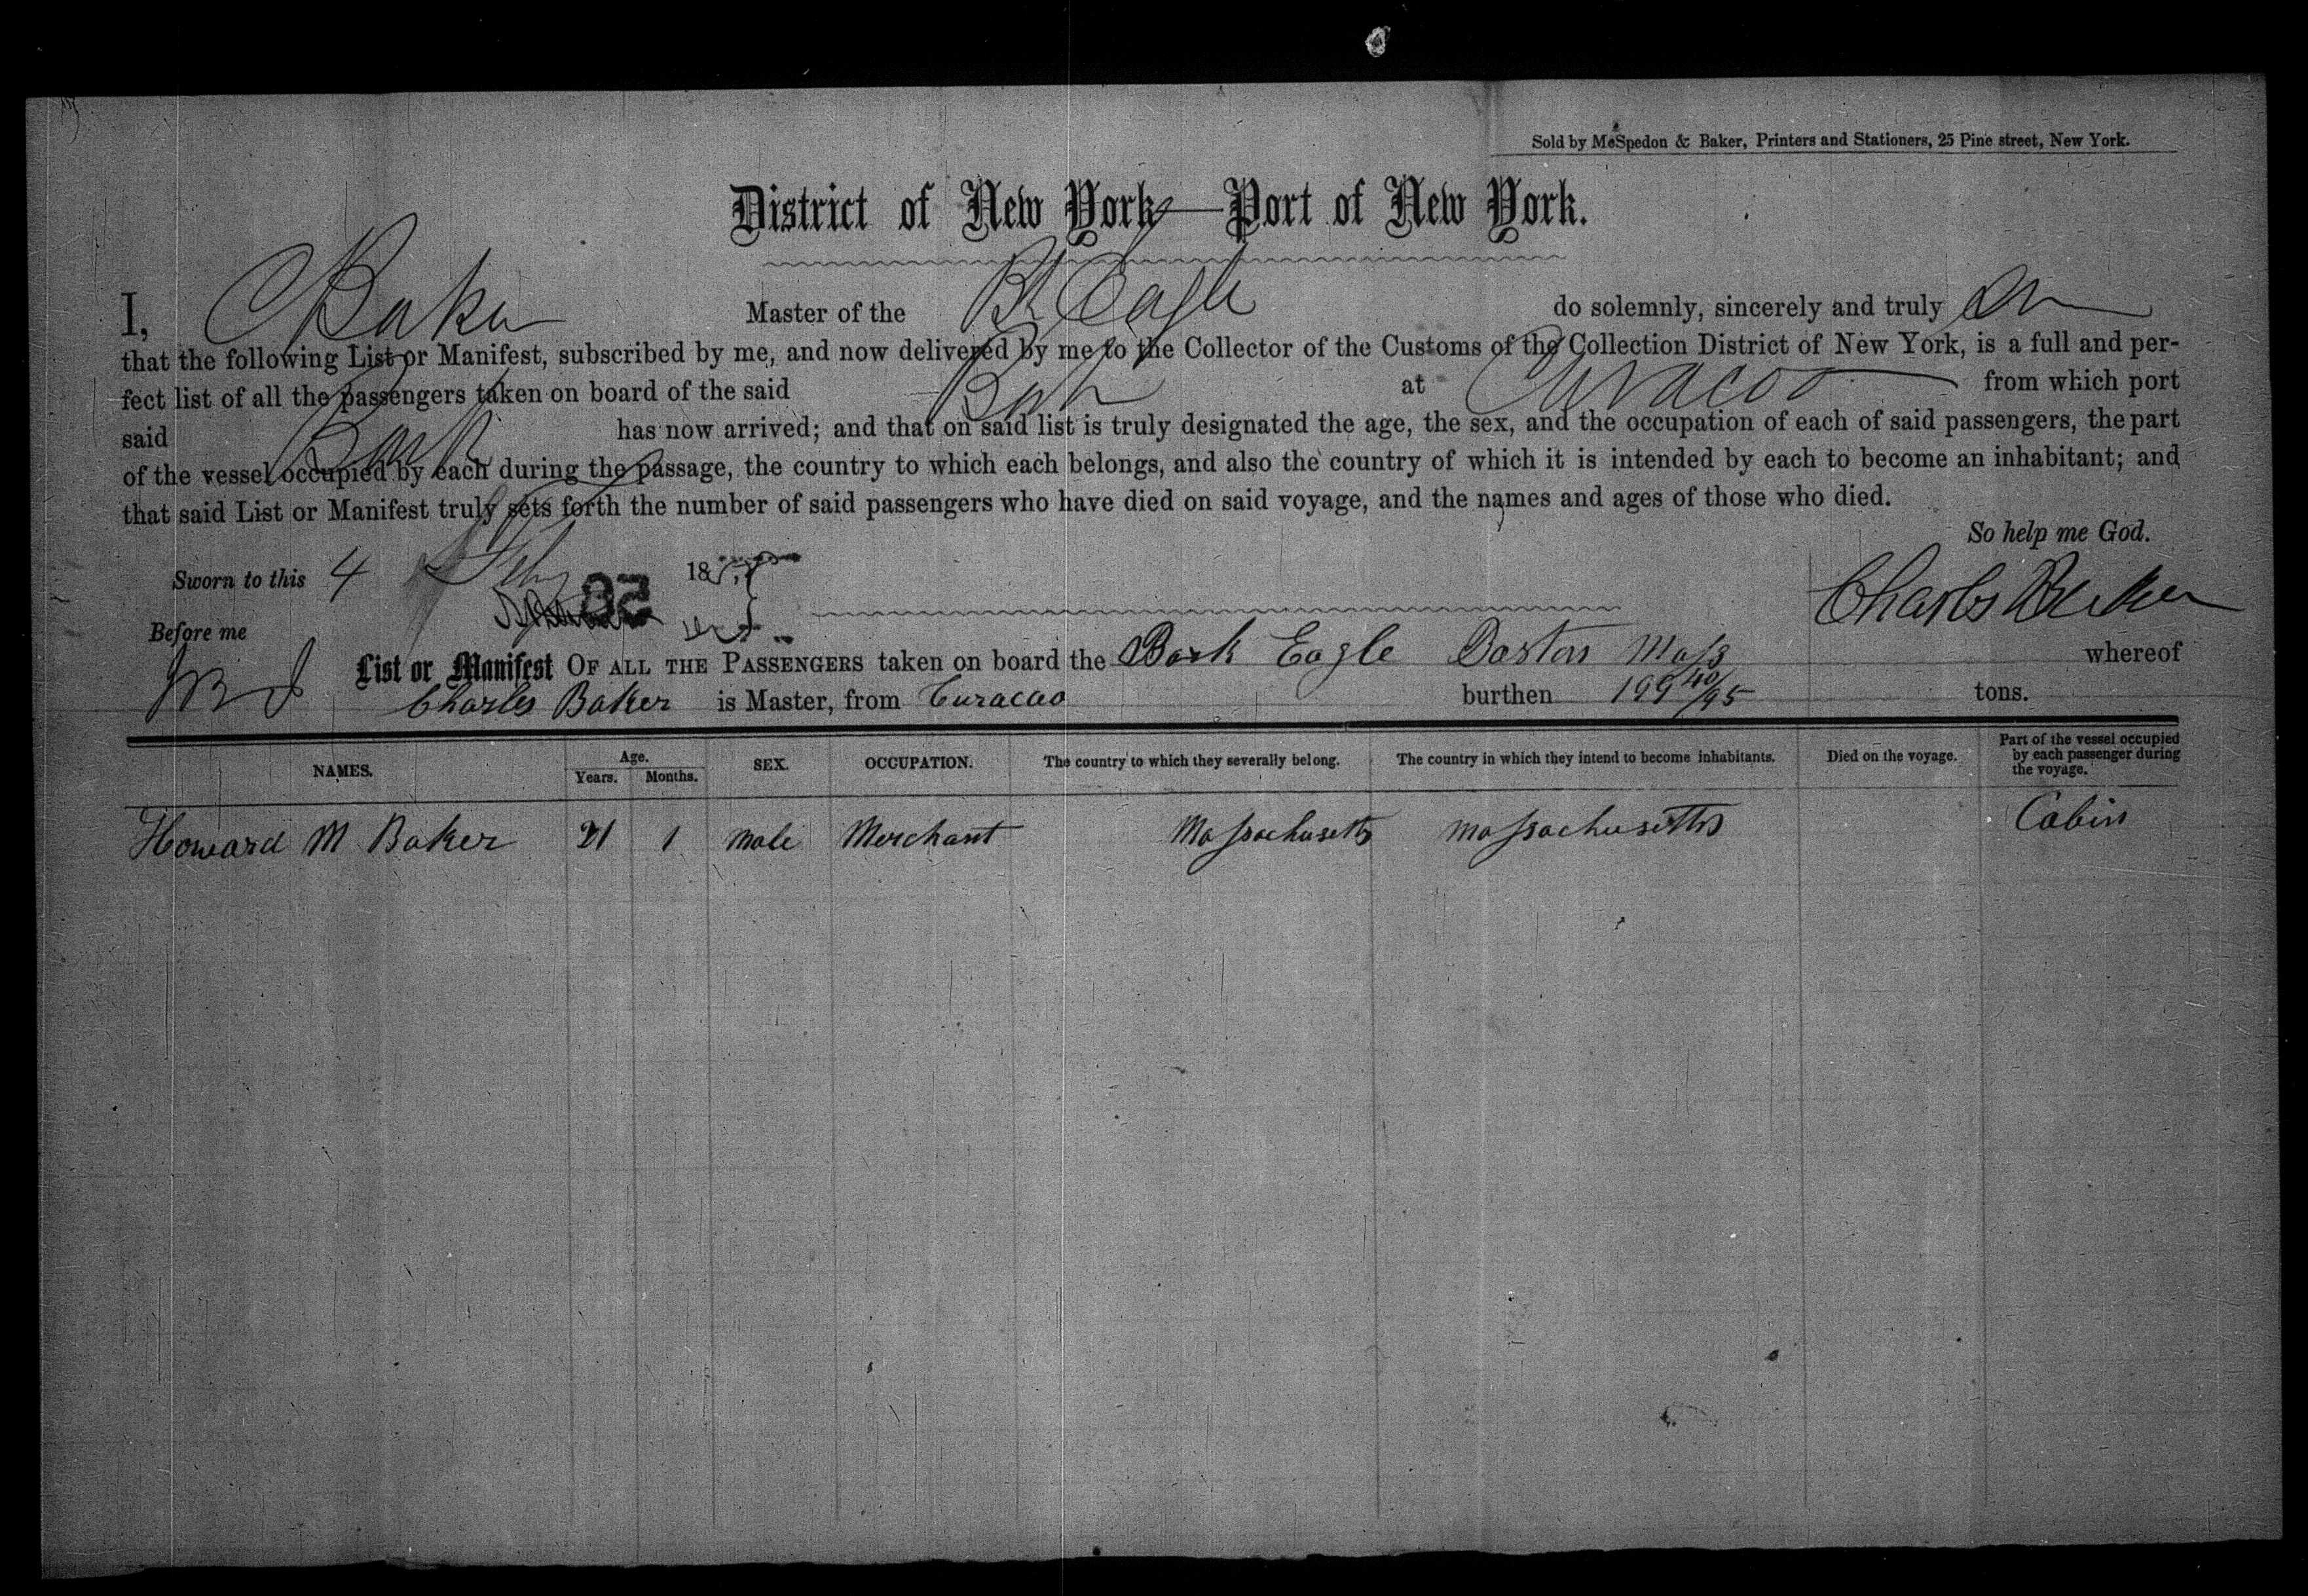 Sold by McSpedon & Baker, Printers and Stationers, 25 Pine street, New York.
District of New York—Port of New York.
I, C Baker Master of the Bk Eagle do solemnly, sincerely and truly
that the following List or Manifest, subscribed by me, and now delivered by me to the Collector of the Customs of the Collection District of New York, is a full and per-
fect list of all the passengers taken on board of the said Bark at Curacoa from which port
said Bark has now arrived; and that on said list is truly designated the age, the sex, and the occupation of each of said passengers, the part
of the vessel occupied by each during the passage, the country to which each belongs, and also the country of which it is intended by each to become an inhabitant; and
that said List or Manifest truly sets forth the number of said passengers who have died on said voyage, and the names and ages of those who died.
So help me God.
Sworn to this 4 Feby 185
Charles Baker
Before me
List or Manifest OF ALL THE PASSENGERS taken on board the Bark Eagle Boston Mass whereof
Charles Baker is Master, from Curacao burthen 199 40/95 tons.
NAMES. Age. Years. Months. SEX. OCCUPATION. The country to which they severally belong. The country in which they intend to become inhabitants. Died on the voyage. Part of the vessel occupied by each passenger during the voyage.
Howard M Baker 21 1 Male Merchant Massachusetts Massachusetts Cabin